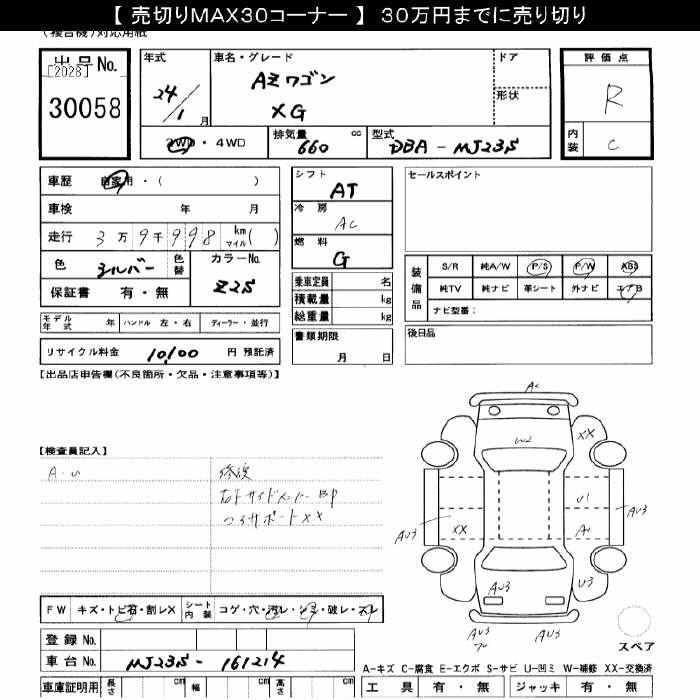 【 売切りMAX30コーナー 】 30万円までに売り切り
(複合機)対応用紙
出品No.
[2028]
30058
年式
24/1月
車名・グレード
AZワゴン
XG
ドア
形状
2WD・4WD
排気量 660 cc
型式 DBA-MJ23S
評価点
R
内装 C
車歴 自家用・( )
車検 年 月
走行 3万9千998 km マイル( )
色 シルバー 色替
カラーNo. Z2S
保証書 有・無
モデル年式 年 ハンドル 左・右 ディーラー・並行
リサイクル料金 10,100 円 預託済
シフト AT
冷房 AC
燃料 G
乗車定員 名
積載量 kg
総重量 kg
書類期限
月 日
セールスポイント
装備品
S/R 純A/W P/S P/W ABS
純TV 純ナビ 革シート 外ナビ エアB
ナビ型番:
後日品
【出品店申告欄(不良箇所・欠品・注意事項等)】
【検査員記入】
A・U
修復
右Fサイドメンバー BP
コアサポートXX
A2
W2
XX
U1
AU3
AU3
XX
U3
AU3
AU3
AU3
スペア
FW キズ・トビ石・割レX
シート内装 コゲ・穴・汚レ・シミ・破レ・スレ
登録No.
車台No. MJ23S-161214
車庫証明用 長さ cm 幅 cm 高さ cm
A-キズ C-腐食 E-エクボ S-サビ U-凹ミ W-補修 XX-交換済
工具 有・無 ジャッキ 有・無